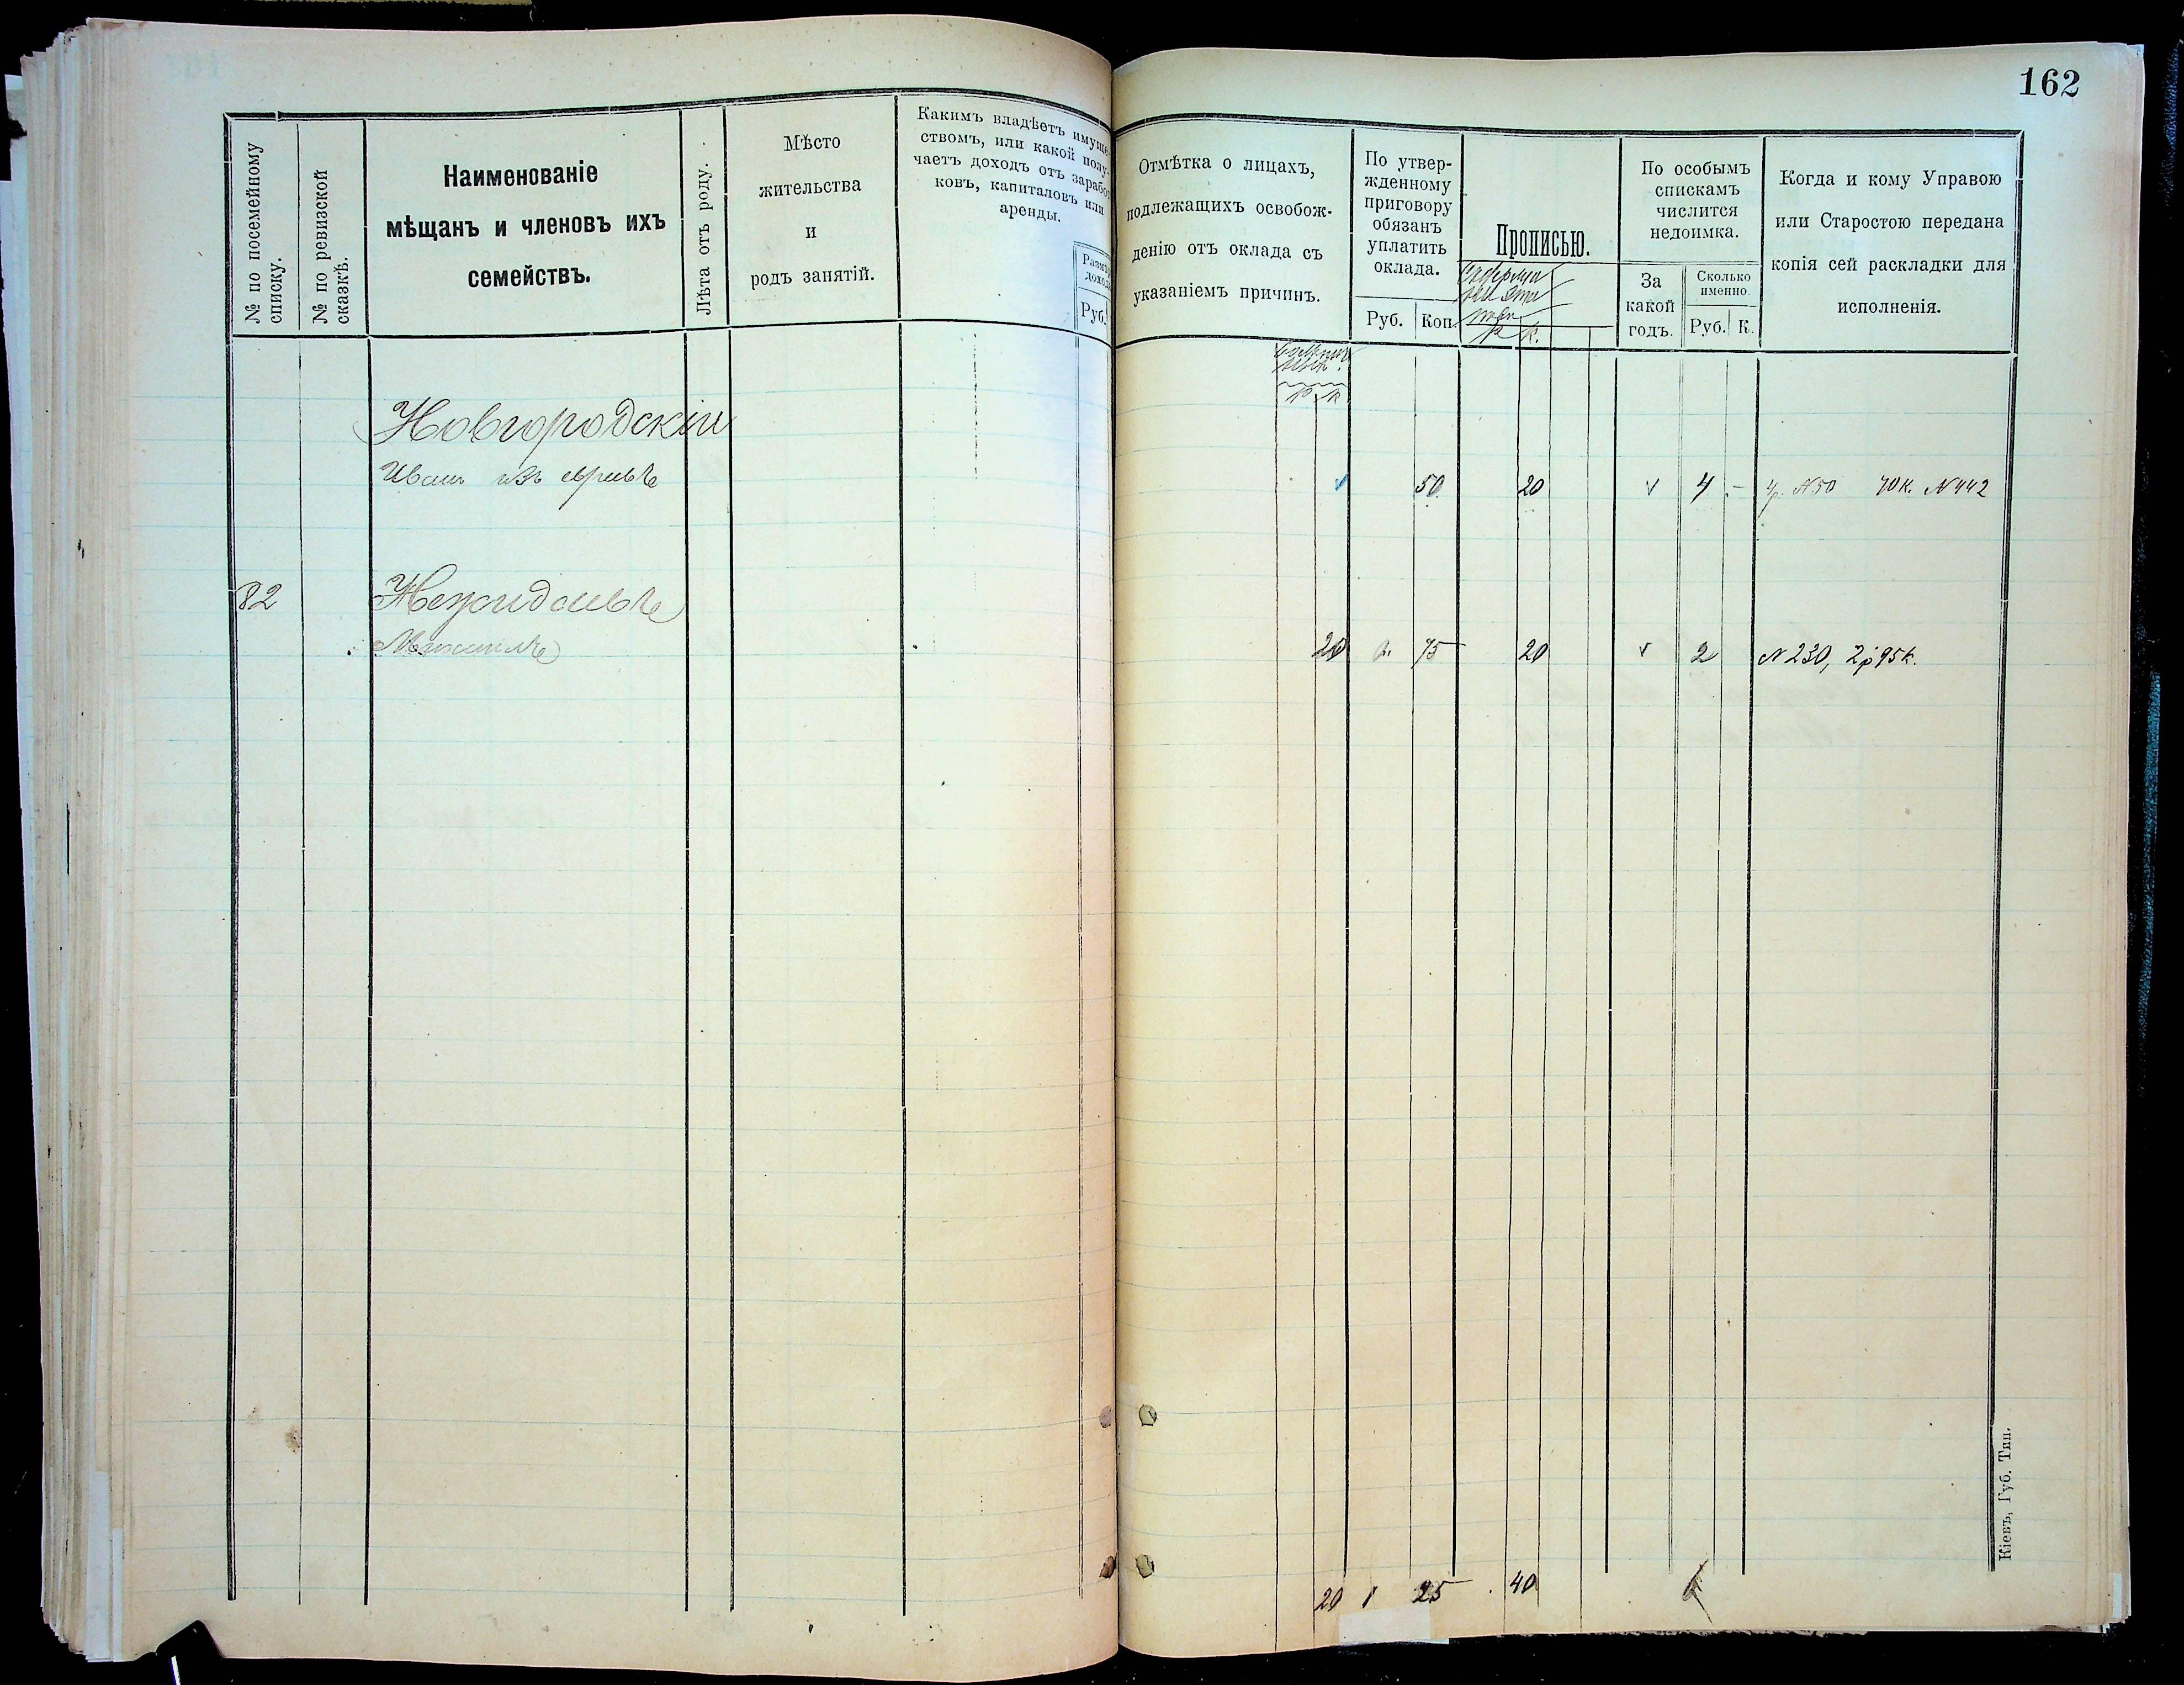 162
№ по посемейному
списку.
№ по ревизской
сказкѣ.
Наименованіе
мѣщанъ и членовъ ихъ
семействъ.
Лѣта отъ роду.
Мѣсто
жительства
и
родъ занятій.
Какимъ владѣетъ имуще-
ствомъ, или какой полу-
чаетъ доходъ отъ заработ-
ковъ, капиталовъ или
аренды.
Руб.
Отмѣтка о лицахъ,
подлежащихъ освобож-
денію отъ оклада съ
указаніемъ причинъ.
По утвер-
жденному
приговору
обязанъ
уплатить
оклада.
Руб. Коп.
Прописью.
р к.
По особымъ
спискамъ
числится
недоимка.
За
какой
годъ.
Сколько
именно.
Руб. К.
Когда и кому Управою
или Старостою передана
копія сей раскладки для
исполненія.
р. к.
Новгородскій
Иванъ изъ 50 20 v 4 - 4р. N50 70к. N442
82 Нежидаевъ
20 75 20 v 2 N230, 2р 95к.
20 1 25 40 6
Кіевъ, Губ. Тип.